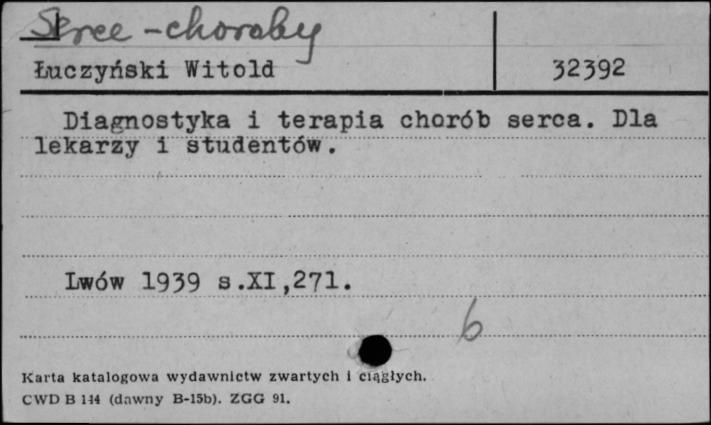 Serce - choroby
Łuczyński Witold 32392
Diagnostyka i terapia chorób serca. Dla
lekarzy i studentów.
Lwów 1939 s.XI,271.
6
Karta katalogowa wydawnictw zwartych i ciągłych.
CWD B 144 (dawny B-15b). ZGG 91.